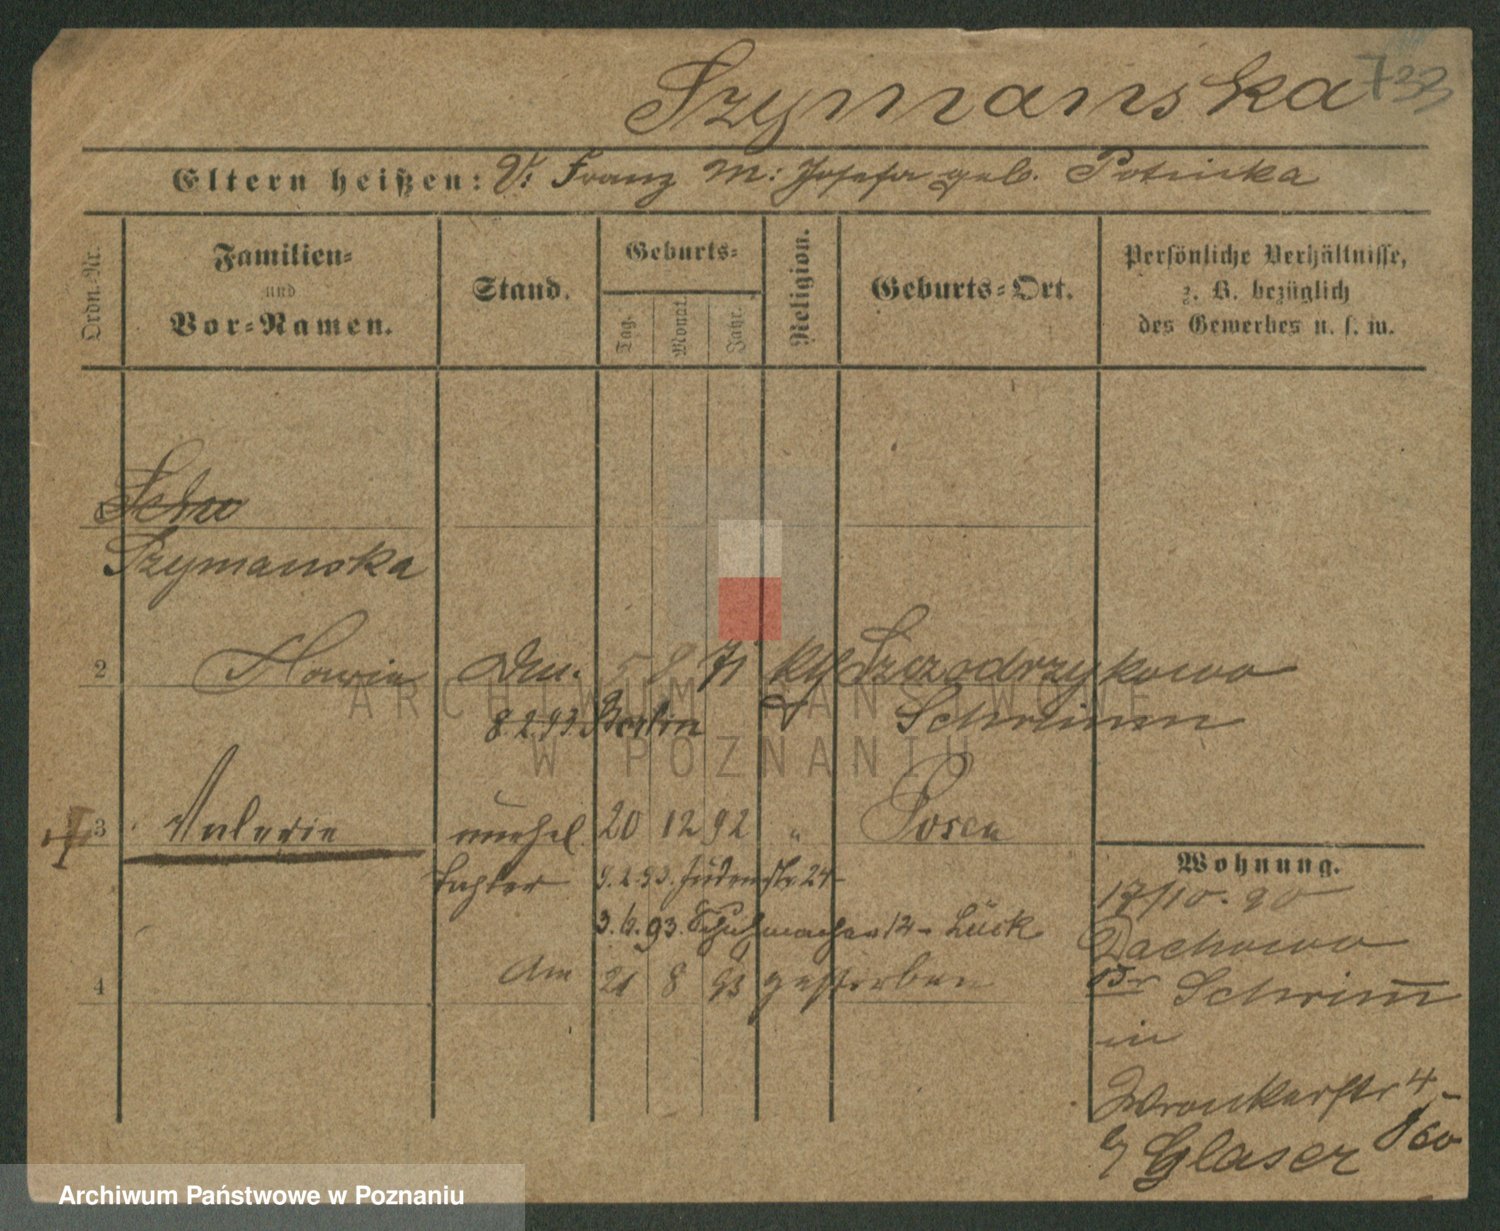 Szymanska 733
Eltern heißen: V: Franz M: Josefa geb. Potricka
Ordn.-Nr.
Familien-
und
Vor-Namen.
Stand.
Geburts-
Tag.
Monat.
Jahr.
Religion.
Geburts-Ort.
Persönliche Verhältnisse,
z. B. bezüglich
des Gewerbes u. s. w.
1
Szymanska
2 71 kth Szczodrzykowo
8.2.93. Berlin Schrimm
3 Valerie unehel. 20 12 92 " Posen
Tochter 9.2.93. Judenstr. 24
3.6.93. Schuhmacher 12 Lück
4 Am 21 8 93 gestorben
Wohnung.
17/10. 90
Dachowo
Kr Schrimm
in
Wronkerstr 4
Glaser
ARCHIWUM PAŃSTWOWE
W POZNANIU
Archiwum Państwowe w Poznaniu